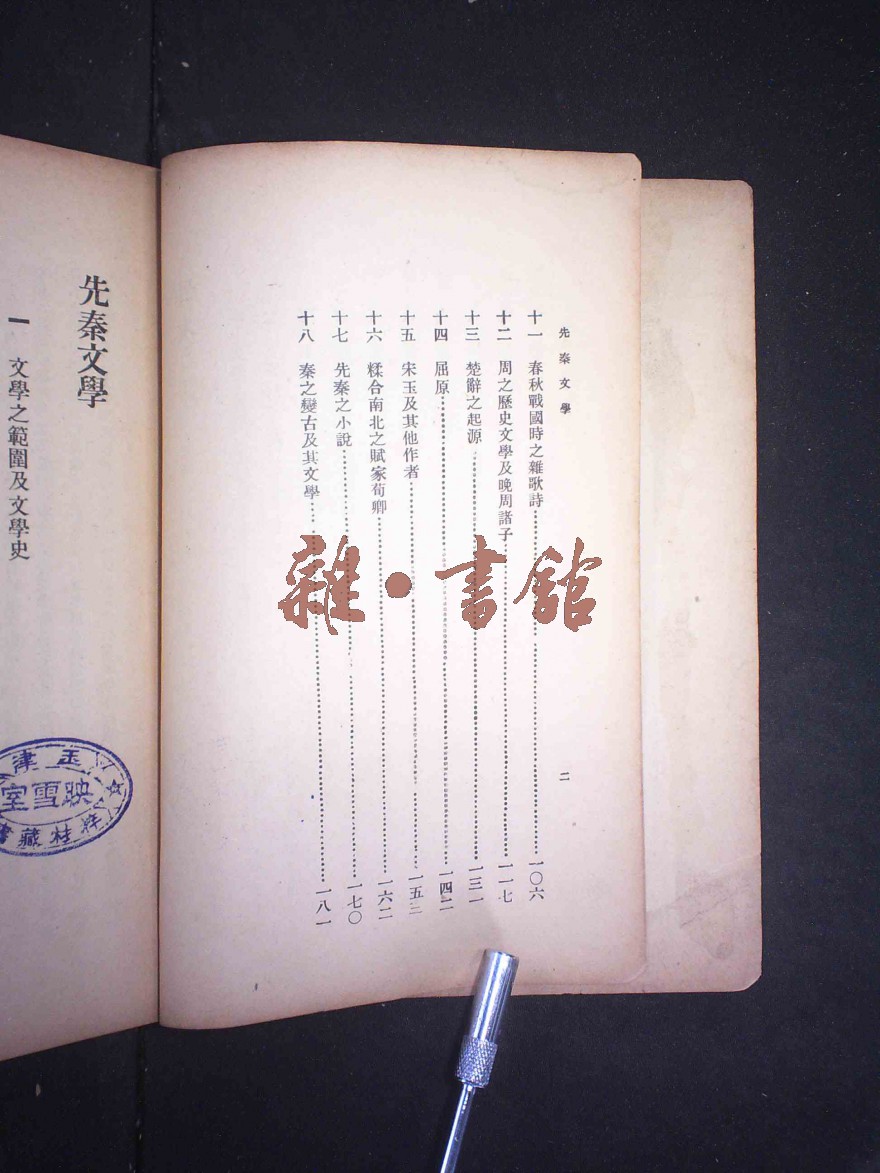 先秦文學
二
十一 春秋戰國時之雜歌詩 一〇六
十二 周之歷史文學及晚周諸子 一一七
十三 楚辭之起源 一三一
十四 屈原 一四二
十五 宋玉及其他作者 一五二
十六 糅合南北之賦家荀卿 一六二
十七 先秦之小說 一七〇
十八 秦之變古及其文學 一八一
雜·書館
先秦文學
一 文學之範圍及文學史
玉津
映雪室
桂藏書